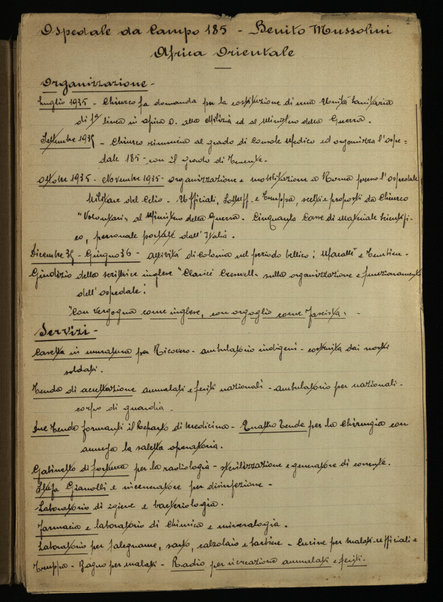 Ospedale da Campo 185 - Benito Mussolini
Africa Orientale
Organizzazione -
Luglio 1935 - Chiurco fa domanda per la costituzione di una Unità Sanitaria
di 1ª linea in Africa O. alla Milizia ed al Ministero della Guerra.
Settembre 1935 - Chiurco rinuncia al grado di Console Medico ed organizza l'ospe-
dale 185 - con il grado di Tenente.
Ottobre 1935 - Novembre 1935 - organizzazione e mobilitazione a Roma presso l'ospedale
Militare del Celio - Ufficiali, Sottuff. e truppa, scelti e proposti da Chiurco
"Volontari" al Ministero della Guerra. Cinquanta casse di materiale scientifi-
co, personale portate dall'Italia.
Dicembre 35 - Giugno 36 - attività di Colonna nel periodo bellico: Macallè e Tembien.
Giudizio della scrittrice inglese "Clarice sulla organizzazione e funzionamento
dell'ospedale:
"Con vergogna come inglese, con orgoglio come fascista".
Servizi -
Casetta in muratura per Ricovero - ambulatorio indigeni - costruita dai nostri
soldati.
Tenda di accettazione ammalati e feriti nazionali - ambulatorio per nazionali -
corpo di guardia.
Due Tende formanti il Reparto di Medicina - Quattro Tende per la Chirurgia con
annessa la saletta operatoria.
Gabinetto di fortuna per la radiologia - sterilizzazione e generatore di corrente.
Stufa Gianolli e inceneratore per disinfezione -
Laboratorio di igiene e batteriologia.
Farmacia e laboratorio di Chimica e mineralogia.
Laboratorio per falegname, sarto, calzolaio e barbiere - Cucine per malati - ufficiali e
truppa - Bagno per malati - Radio per ricreazione ammalati e feriti.